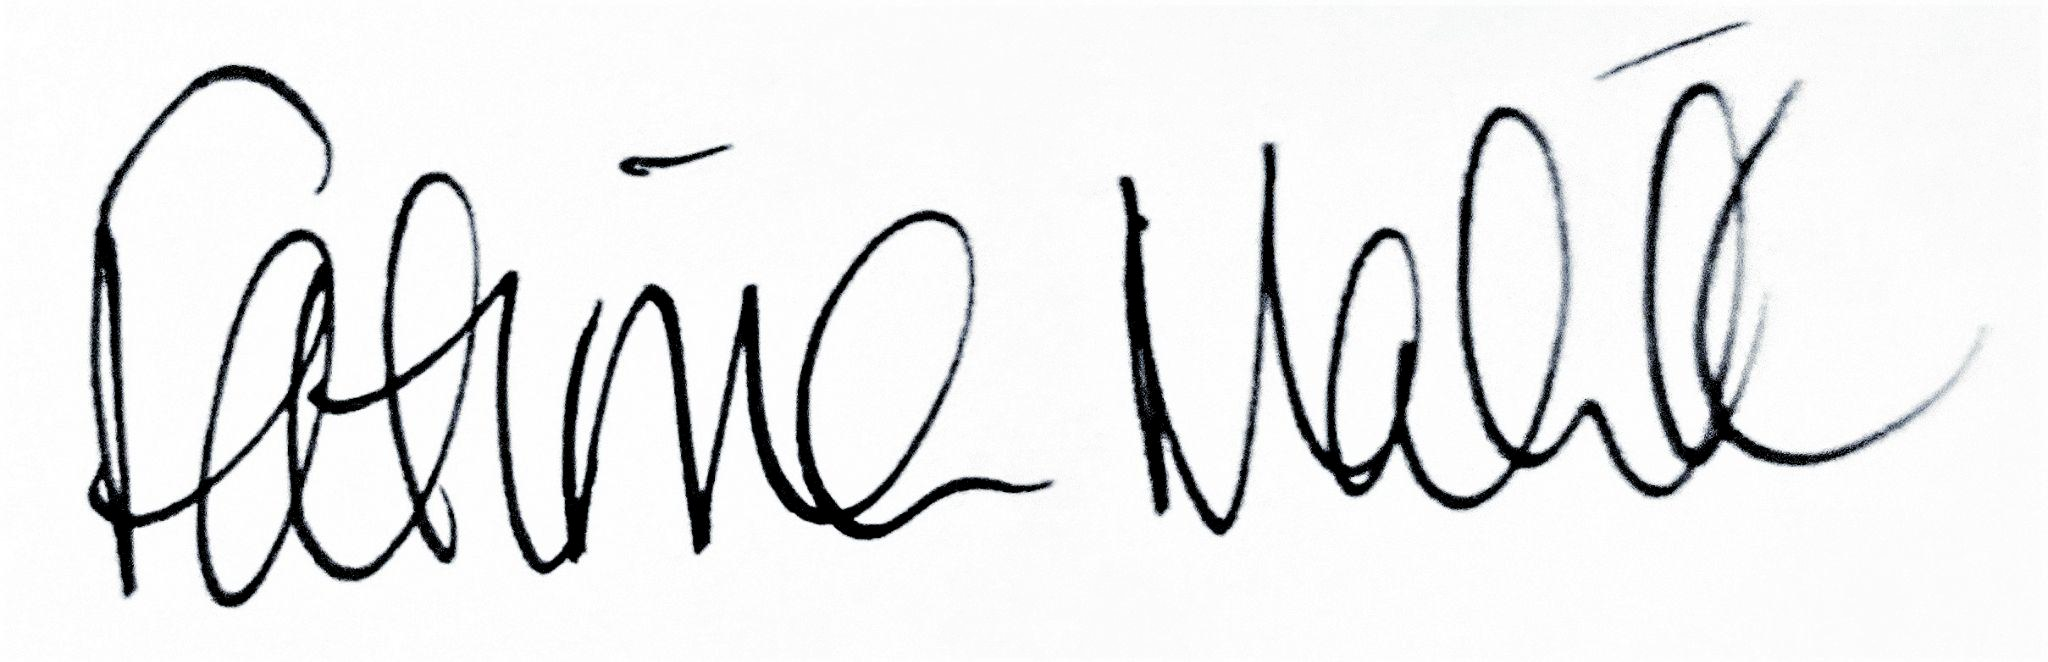 Fatima Malik